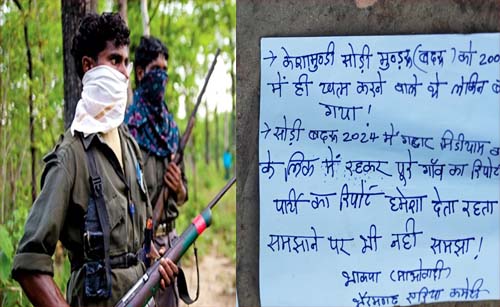 → केशामुण्डी सोड़ी मुण्ड्रा (बदरू) को 200
में ही खत्म करने वाले थे लेकिन
गया!
→ सोड़ी बदरू 2024 में गद्दार मिडीयाम
के लिंक में रहकर पूरे गाँव का रिपोर्ट
पार्टी का रिपोर्ट हमेशा देता रहता
समझाने पर भी नही समझा!
भाकपा (माओवादी)
भैरमगढ़ एरिया कमेटी